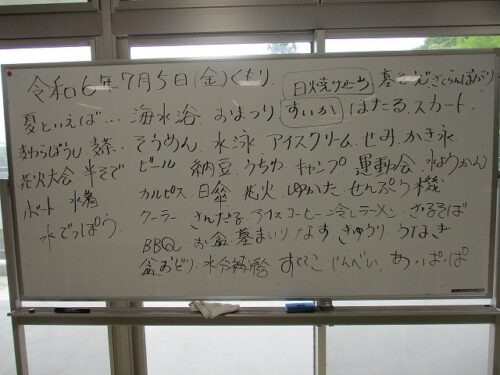 令和6年7月5日(金)くもり 日焼け止め
夏といえば… 海水浴 おまつり すいか ほたる スカート
麦わらぼうし 麦茶 そうめん 水泳 アイスクリーム せみ かき氷
花火大会 半そで ビール 納豆 うちわ キャンプ 運動会 水ようかん
ボート 水着 カルピス 日傘 花火 ゆかた せんぷう機
水でっぽう クーラー さんだる アイスコーヒー 冷しラーメン ざるそば
BBQ お盆 墓まいり なす きゅうり うなぎ
盆おどり 水分補給 すててこ じんべい あっぱっぱ